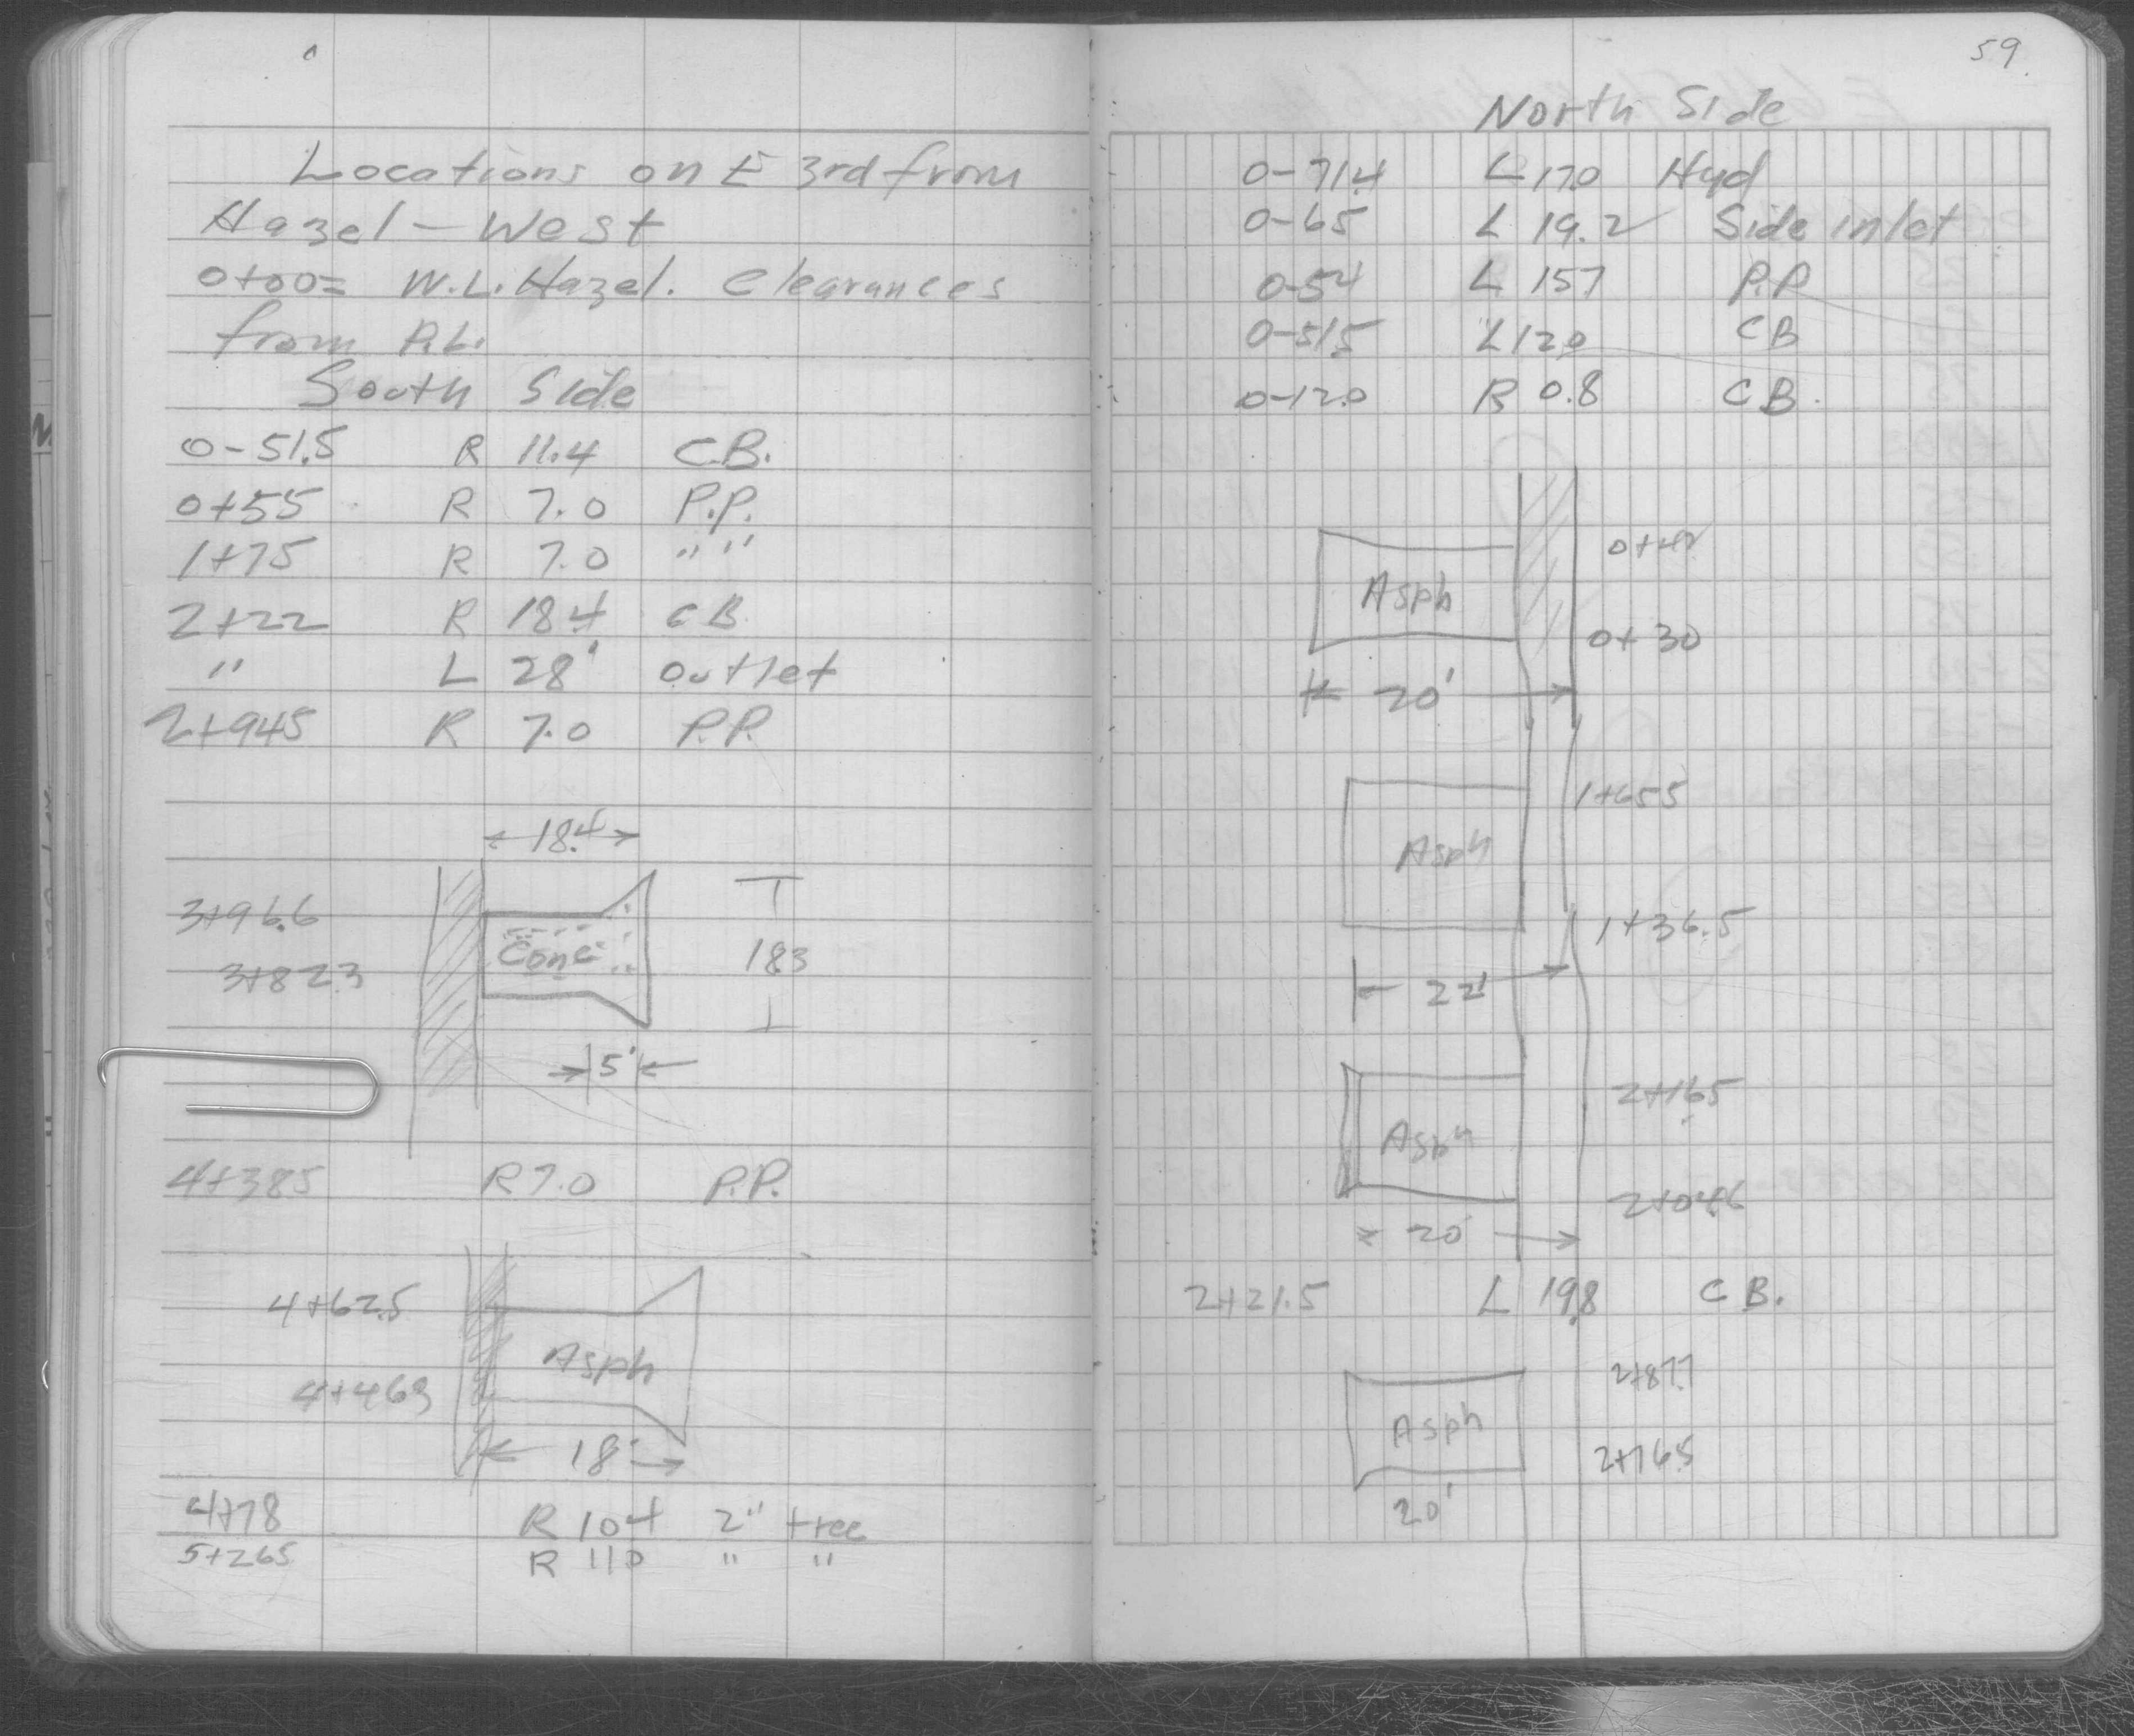 Locations on E 3rd from
Hazel - West
0+00 = W.L. Hazel. Clearances
from P.L.
South Side
0-51.5 R 11.4 C.B.
0+55 R 7.0 P.P.
1+75 R 7.0 " "
2+22 R 18.4 CB
" L 28' outlet
2+94.5 R 7.0 P.P.
18.4
3+96.6
Conc
18.3
3+82.3
5'
4+38.5 R 7.0 P.P.
4+62.5
Asph
4+46.3
18'
4+78 R 10.4 2" tree
5+26.5 R 11.0 " "
59.
North Side
0-71.4 L 17.0 Hyd
0-65 L 19.2 Side inlet
0-54 L 15.7 P.P
0-51.5 L 12.0 CB
0-12.0 R 0.8 CB.
Asph
0+30
20'
1+65.5
Asph
1+36.5
22'
2+16.5
Asph
2+04.6
20
2+21.5 L 19.8 C B.
2+87.7
Asph
2+76.5
20'